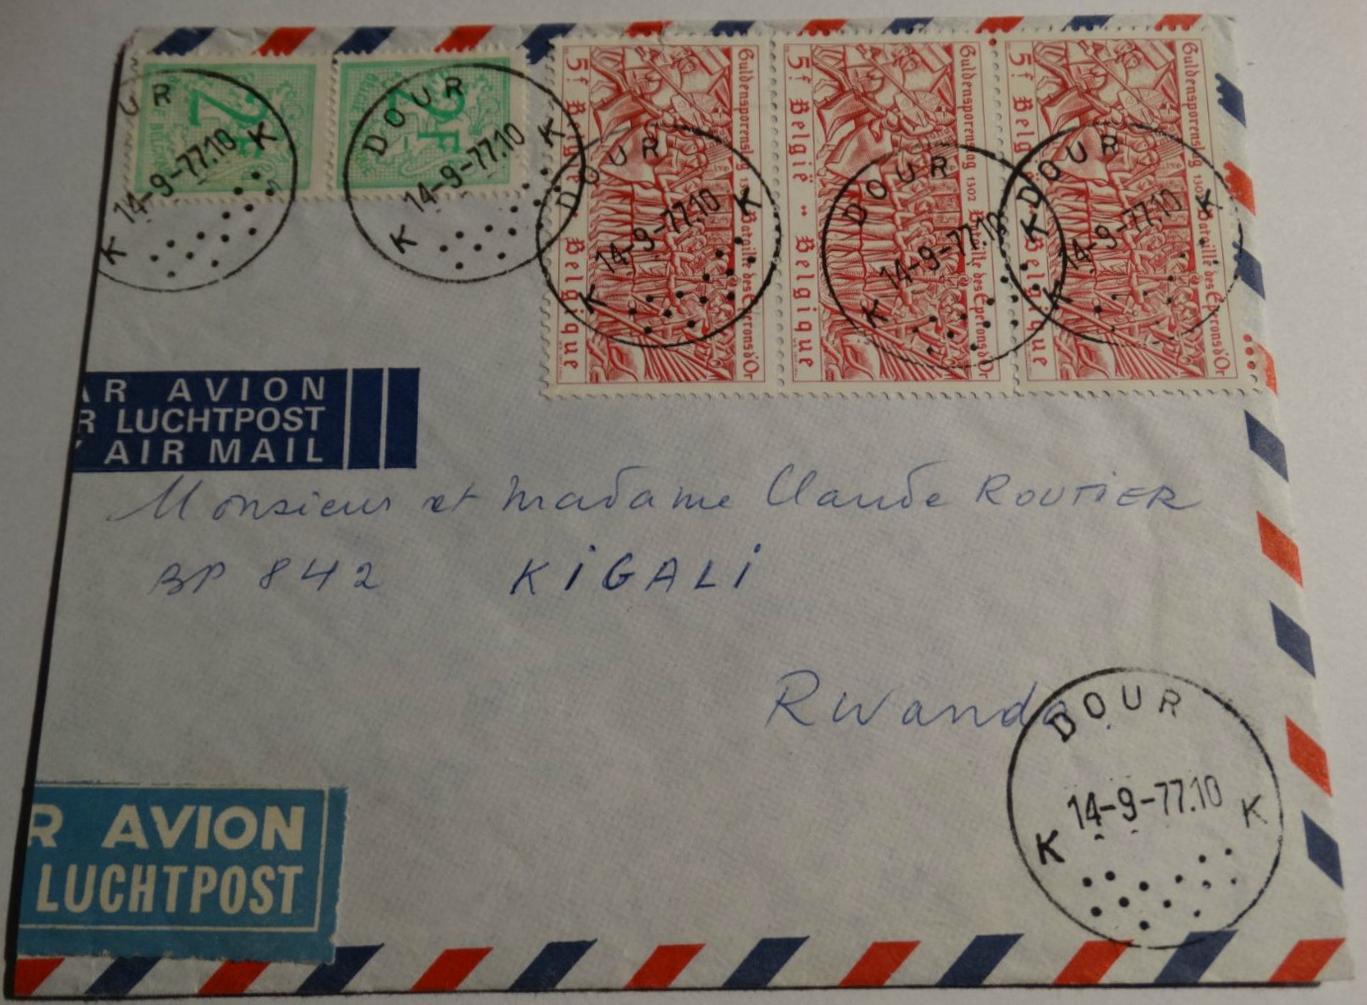 DOUR
14-9-77.10
K K
DOUR
14-9-77.10
K K
DOUR
14-9-77.10
K K
DOUR
14-9-77.10
K K
DOUR
14-9-77.10
K K
2F
2F
5f België •• Belgique
Guldensporenslag 1302 Bataille des Eperons d'Or
5f België •• Belgique
Guldensporenslag 1302 Bataille des Eperons d'Or
5f België •• Belgique
Guldensporenslag 1302 Bataille des Eperons d'Or
AR AVION
R LUCHTPOST
Y AIR MAIL
Monsieur et Madame Claude ROUTIER
BP 842 KIGALI
Rwanda
DOUR
14-9-77.10
K K
R AVION
LUCHTPOST